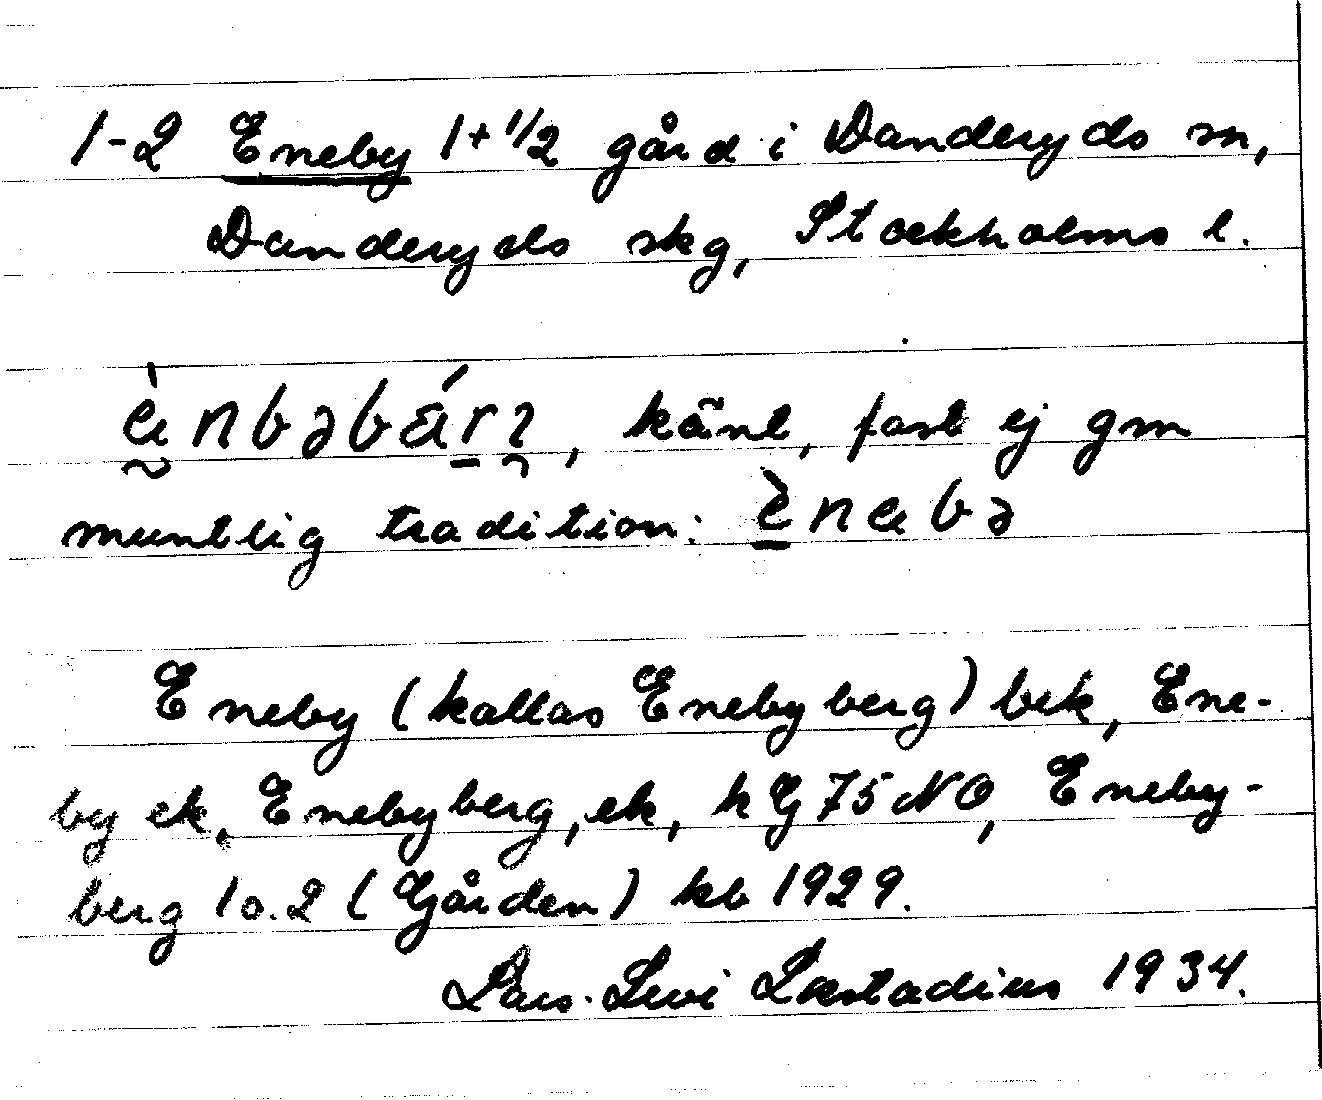 1-2 Eneby 1+1/2 gård i Danderyds sn,
Danderyds skg, Stockholms l.
känt, fast ej gm
muntlig tradition:
Eneby (kallas Enebyberg) bek, Ene-
by ek, Enebyberg, ek, k G 75 NO, Eneby-
berg 1 o. 2 (Gården) kb 1929.
Lars-Levi Læstadius 1934.